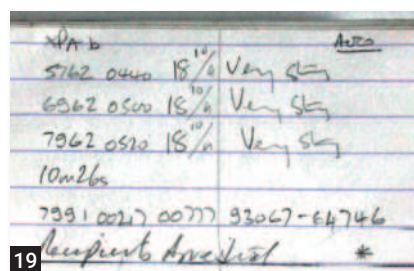 XPA-b Auto
5762 0440 18 10/10 Very Stg
6962 0500 18 10/10 Very Stg
7962 0520 18 10/10 Very Stg
10m26s
7991 00217 00777 93067-64746
Recipients *
19